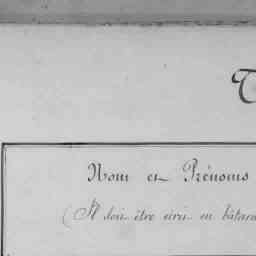 T
Nom et Prénoms
(Il doit être écrit en bâtard